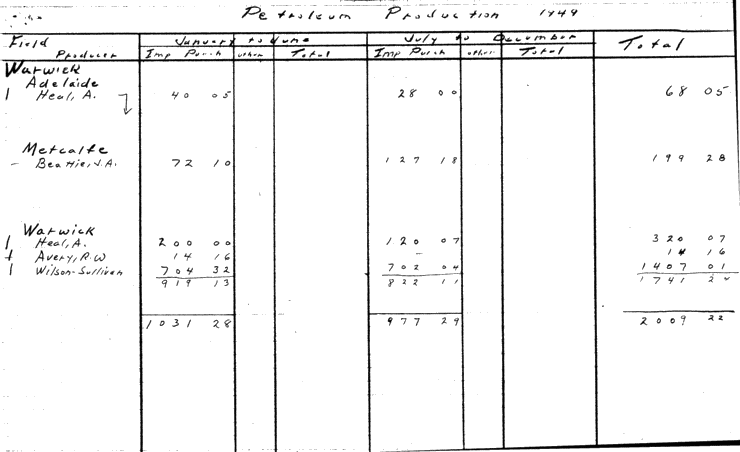 Petroleum Production 1949
Field January to June July to December Total
Producer Imp Purch other Total Imp Purch other Total
Warwick
Adelaide
1 Heal, A. 40 05 28 00 68 05
Metcalfe
- Beattie, J.A. 72 10 127 18 199 28
Warwick
1 Heal, A. 200 00 120 07 320 07
1 Avery, R.W 14 16 - 14 16
1 Wilson-Sullivan 704 32 702 04 1407 01
919 13 822 11 1741 24
1031 28 977 29 2009 22